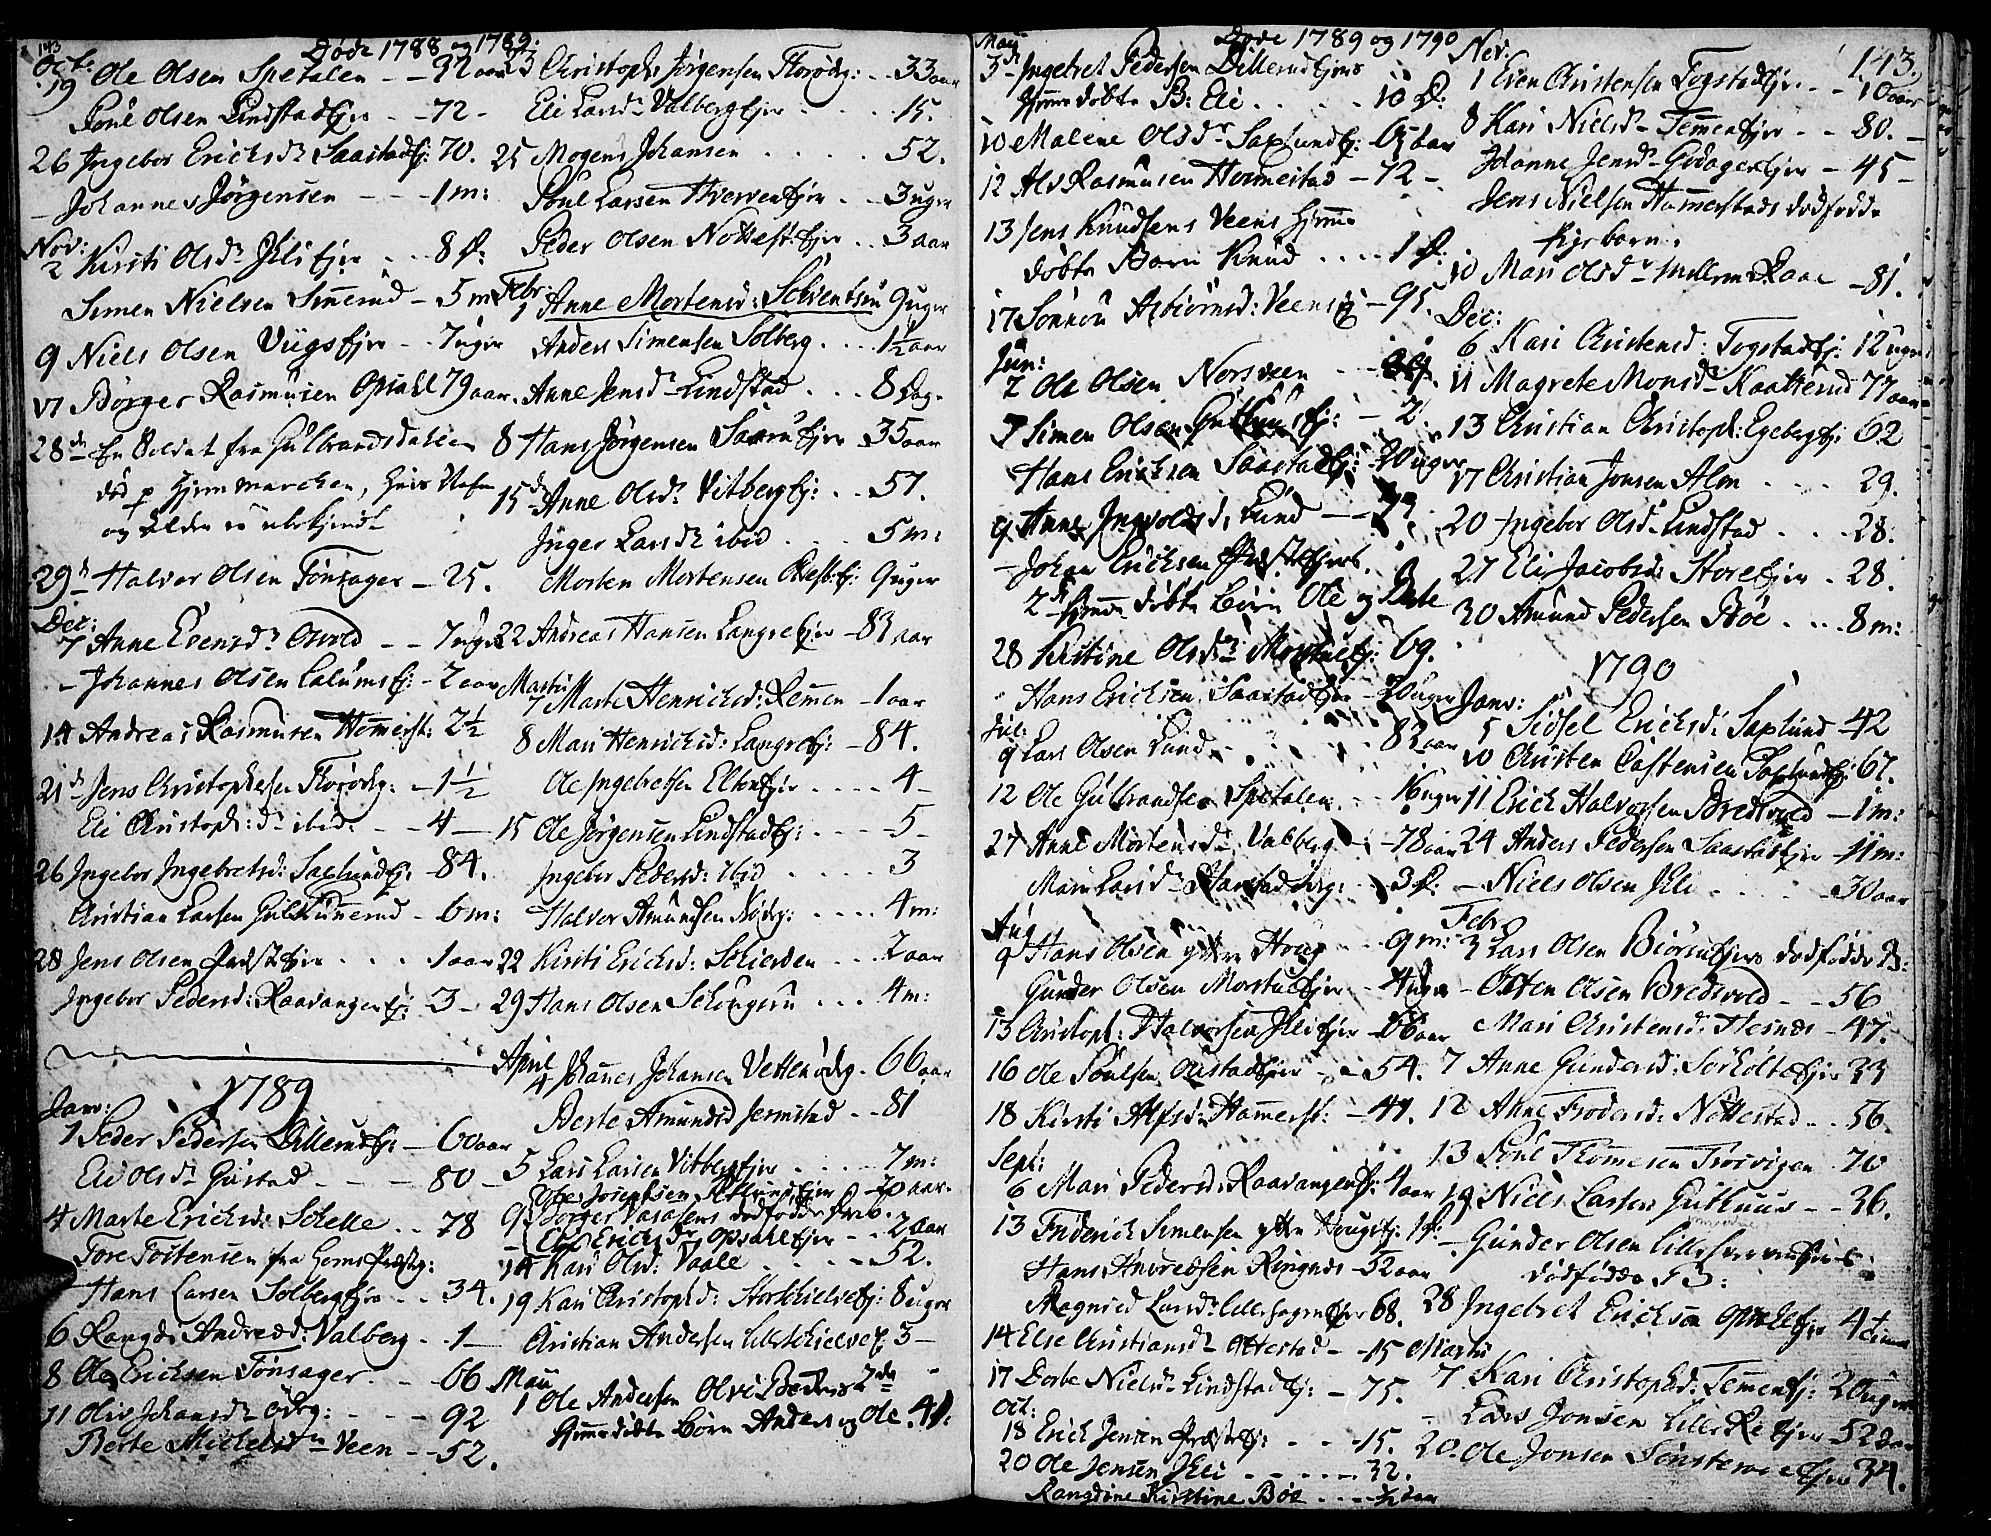 143
Døde 1788 og 1789.
Octb.
19 Ole Olsen Spetalen - - 32 aar
Poul Olsen Lindstadejer - - 72 -
26 Ingebor Erichsdr Saastadej: 70.
- Johannes Jørgensen - - - 1 m:
Nov:
2 Kirsti Olsdr Jhli ejer - - - 8 D:
Simen Nielsen Simerud - 5 m
9 Niels Olsen Viigs Ejer - - 7 uger
17 Børger Rasmusen Opsahl 79 aar.
28de En Soldat fra Gulbrandsdalen
død p Hjem marchen, hvis Nafn
og Alder er ubekjendt
29de Halvor Olsen Tønsager - 25.
Dec:
7 Anne Evensdr Osvold - - 7 uger
- Johannes Olsen Lalumsej: - 2 aar
14 Andreas Rasmusen Homerst: 2½
21de Jens Christophersen Thorødeg: - 1½
Eli Christoph:dr ibid: - - 4 -
26 Ingebor Ingebretsd: Saxlundej: - 84.
Christian Larsen Gulchunerud - 6 m:
28 Jens Olsen Præstejer - - - 1 aar
Ingebor Pedersd: Raavangenej: 3 -
1789
Janv:
1 Peder Pedersen Dillerudej: - 60 aar
Eli Olsdr Gustad - - - 80 -
4 Marte Erichsd: Schelle - - 78
Tore Tostensen fra Homs Præsteg:
- Hans Larsen Solbergejer - - 34.
6 Rangdi Andreæd: Valberg - - 1 -
8 Ole Erichsen Tønsager - - 66
11 Oliv Johansdr Ødeg: - - - 92
Berte Michelsdr Veen - - 52.
23 Christoph: Jørgensen Thorødeg: - - 33 aar
Eli Larsdr Valbergejer - - - 15.
25 Mogens Johansen - - - - 52.
Poul Larsen Hvervenejer - - 3 uger
Peder Olsen Nottest: ejer - - 3 aar
Febr:
1 Anne Mortensd: Schventsen 9 uger
Anders Simensen Solberg - - - 1½ aar
Anne Jensdr Lindstad - - - 8 Dag.
8 Hans Jørgensen Ejer - 35 aar
15de Anne Olsdr Vitbergej: - - 57.
Inger Larsdr ibid - - - 5 m:
Morten Mortensen ej: 9 uger
22 Andreas Hansen Langreejer - 83 aar
Martii
7 Marte Henrichsd: Remen - 1 aar
8 Mari Henrichsd: Langreej: - 84.
Ole Ingebretsen Elten ejer - - - - 4 -
15 Ole Jørgensen Lindstadej: - - - - 5 -
Ingebor Pedersd: ibid - - - - 3
Halvor Amundsen Rødeg: - - - - 4 m:
22 Kirsti Erichsd: Schierden - - - 2 aar
29 Hans Olsen Schougsru - - - 4 m:
April
4 Johanes Johansen Vettenødeg - 66 aar
Berte Amundsd Jermstad - - 81
5 Lars Larsen Vitbergejer - - - - 7 m:
Josephsen ejer - 70 aar.
9 Børger dødfødde Drb.
- Erichsdr Opsahlejer - - 2 aar
14 Kari Olsd: Vaale - - - - - 52.
19 Kari Christophd: Storschielveej: 8 uger
Christian Andersen Lilleschielveej: 3 -
Maii
1 Ole Andersen Olvi Bødkers 2de
Hjemedøbte Børn Anders og Ole. 4 D:
Døde 1789 og 1790
143.
Maij
3de Ingebret Pedersen Dillerudejers
Hjemdøbte B: Eli - - - - - 10 D:
10 Malene Olsdr Saxlundej: 65 aar
12 Alv Rasmusen Homestad - 72 -
13 Jens Knudsens Veens Hjemme
døbte Barn Knud - - - - 1 D:
17 Sønnøv Asbiørnsd: Veensej - 95.
Jun:
2 Ole Olsen Norsveen - -
7 Simen Olsen Guthuusej: - 2.
Hans Erichsen Saastadej: - 20 uger
9 Anne Ingvoldsd: Lund - -
- Johan Erichsen Præstejers
2de Hjemme døbte Børn Ole og
28 Kirstine Olsdr Morstueej: 69.
- Hans Erichsen Saastadejer - 20 uger
Jul:
9 Lars Olsen Lund - - - - - 83 aar
12 Ole Gulbrandsen Spetalen - - 16 uger
27 Anne Mortensdr Valberg - - 78 aar
Mari Larsdr - - 3 D:
Aug
9 Hans Olsen ytre Houg - - - 9 m:
Gunder Olsen Morstueejer - 4 uger
13 Christoph: Halvorsen Jhliejer - 66 aar
16 Ole Poulsen ejer - - 54.
18 Kirsti Alfsd: Homerst: - 41.
Sept:
6 Mari Pedersd: Raavangenej: 4 aar
13 Friderich Simensen ytre Hougsej: 1 D:
Hans Andreæsen Ringnes - 52 aar
Magnild Larsdr Lillehagenejer 68.
14 Else Christiansdr Ottestad - - 15
17 Dorte Nielsdr Lindstadej: - 75.
Oct:
18 Erich Jensen Præstej: - - - 15.
20 Ole Jensen Jhli - - - - - 32.
Rangdine Kirstine Bøe - - - ½ aar
Nov:
1 Even Christensen Togstadej: - - 10 aar
8 Kari Nielsdr Temenejer - - 80. -
Johanne Jensdr Godagerejer - 45 -
Jens Nielsen Homerstads dødfødde
Pigebarn.
10 Mari Olsdr Mellem Raae - 81.
Dec:
6 Kari Christensd: Togstadej: 12 uger
11 Magrete Monsdr Kaatterud 77 aar
13 Christian Christoph: Egebergej: 62
17 Christian Jonsen Alm - - - 29.
20 Ingebor Olsdr Lindstad - - - - 28.
27 Eli Jacobsd: Storeejer - 28.
30 Amund Pedersen Bøe - - - 8 m:
1790
Janv:
5 Sidsel Erichsd: Saxlund - 42
10 Christen Castensen Saxlundej: 67.
11 Erich Halvorsen Bredvold - 1 m:
24 Anders Pedersen Saastadejer - 11 m:
- Niels Olsen Jhli - - - - - 30 aar
Febr:
3 Lars Olsen Biørnejers dødfødde B:
- Østen Olsen Bredvold - - 56
Mari Christensd: Hesnes - 47.
7 Anne Gundersd: Sørholteejer 33
12 Anne Frodersd: Nøttestad - - 56.
13 Poul Thomesen Frosvigen - 70
19 Niels Larsen Guthuus - - 36.
- Gunder Olsen Lillehvervenejers
dødfødde B:
28 Ingebret Erichsen Opsahlejer 4 timer
Martii
7 Kari Christophd: Temenej: 20 uger
- Lars Jonsen Lille Re ejer - 52 aar
20 Ole Jonsen ejer 34.